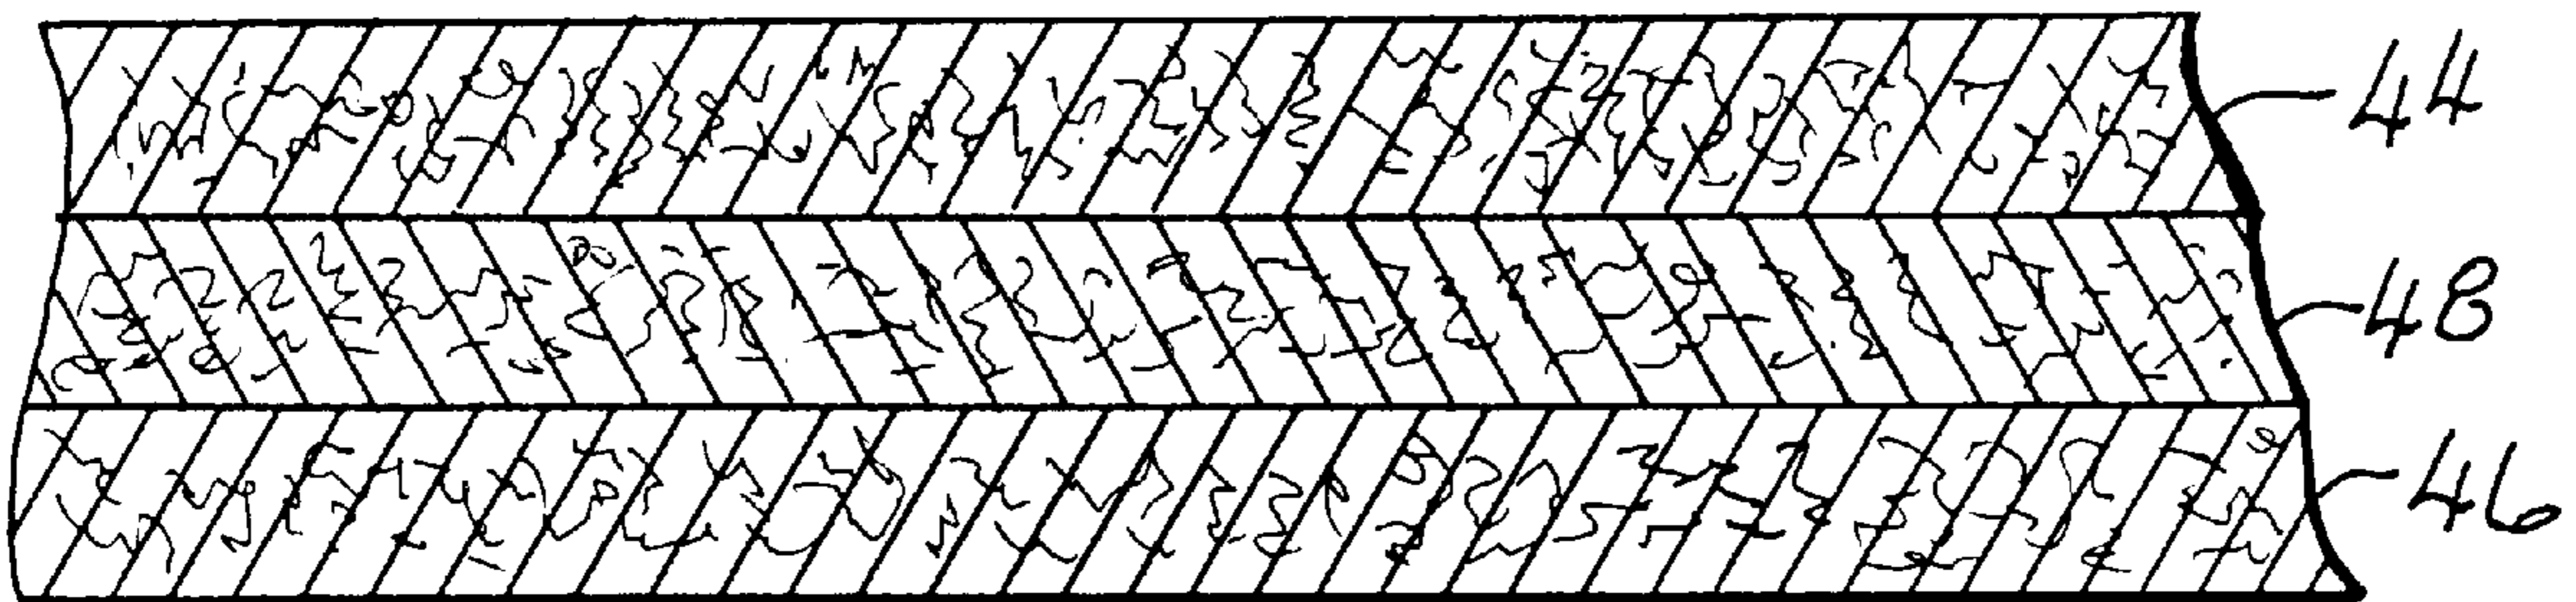 44
48
46